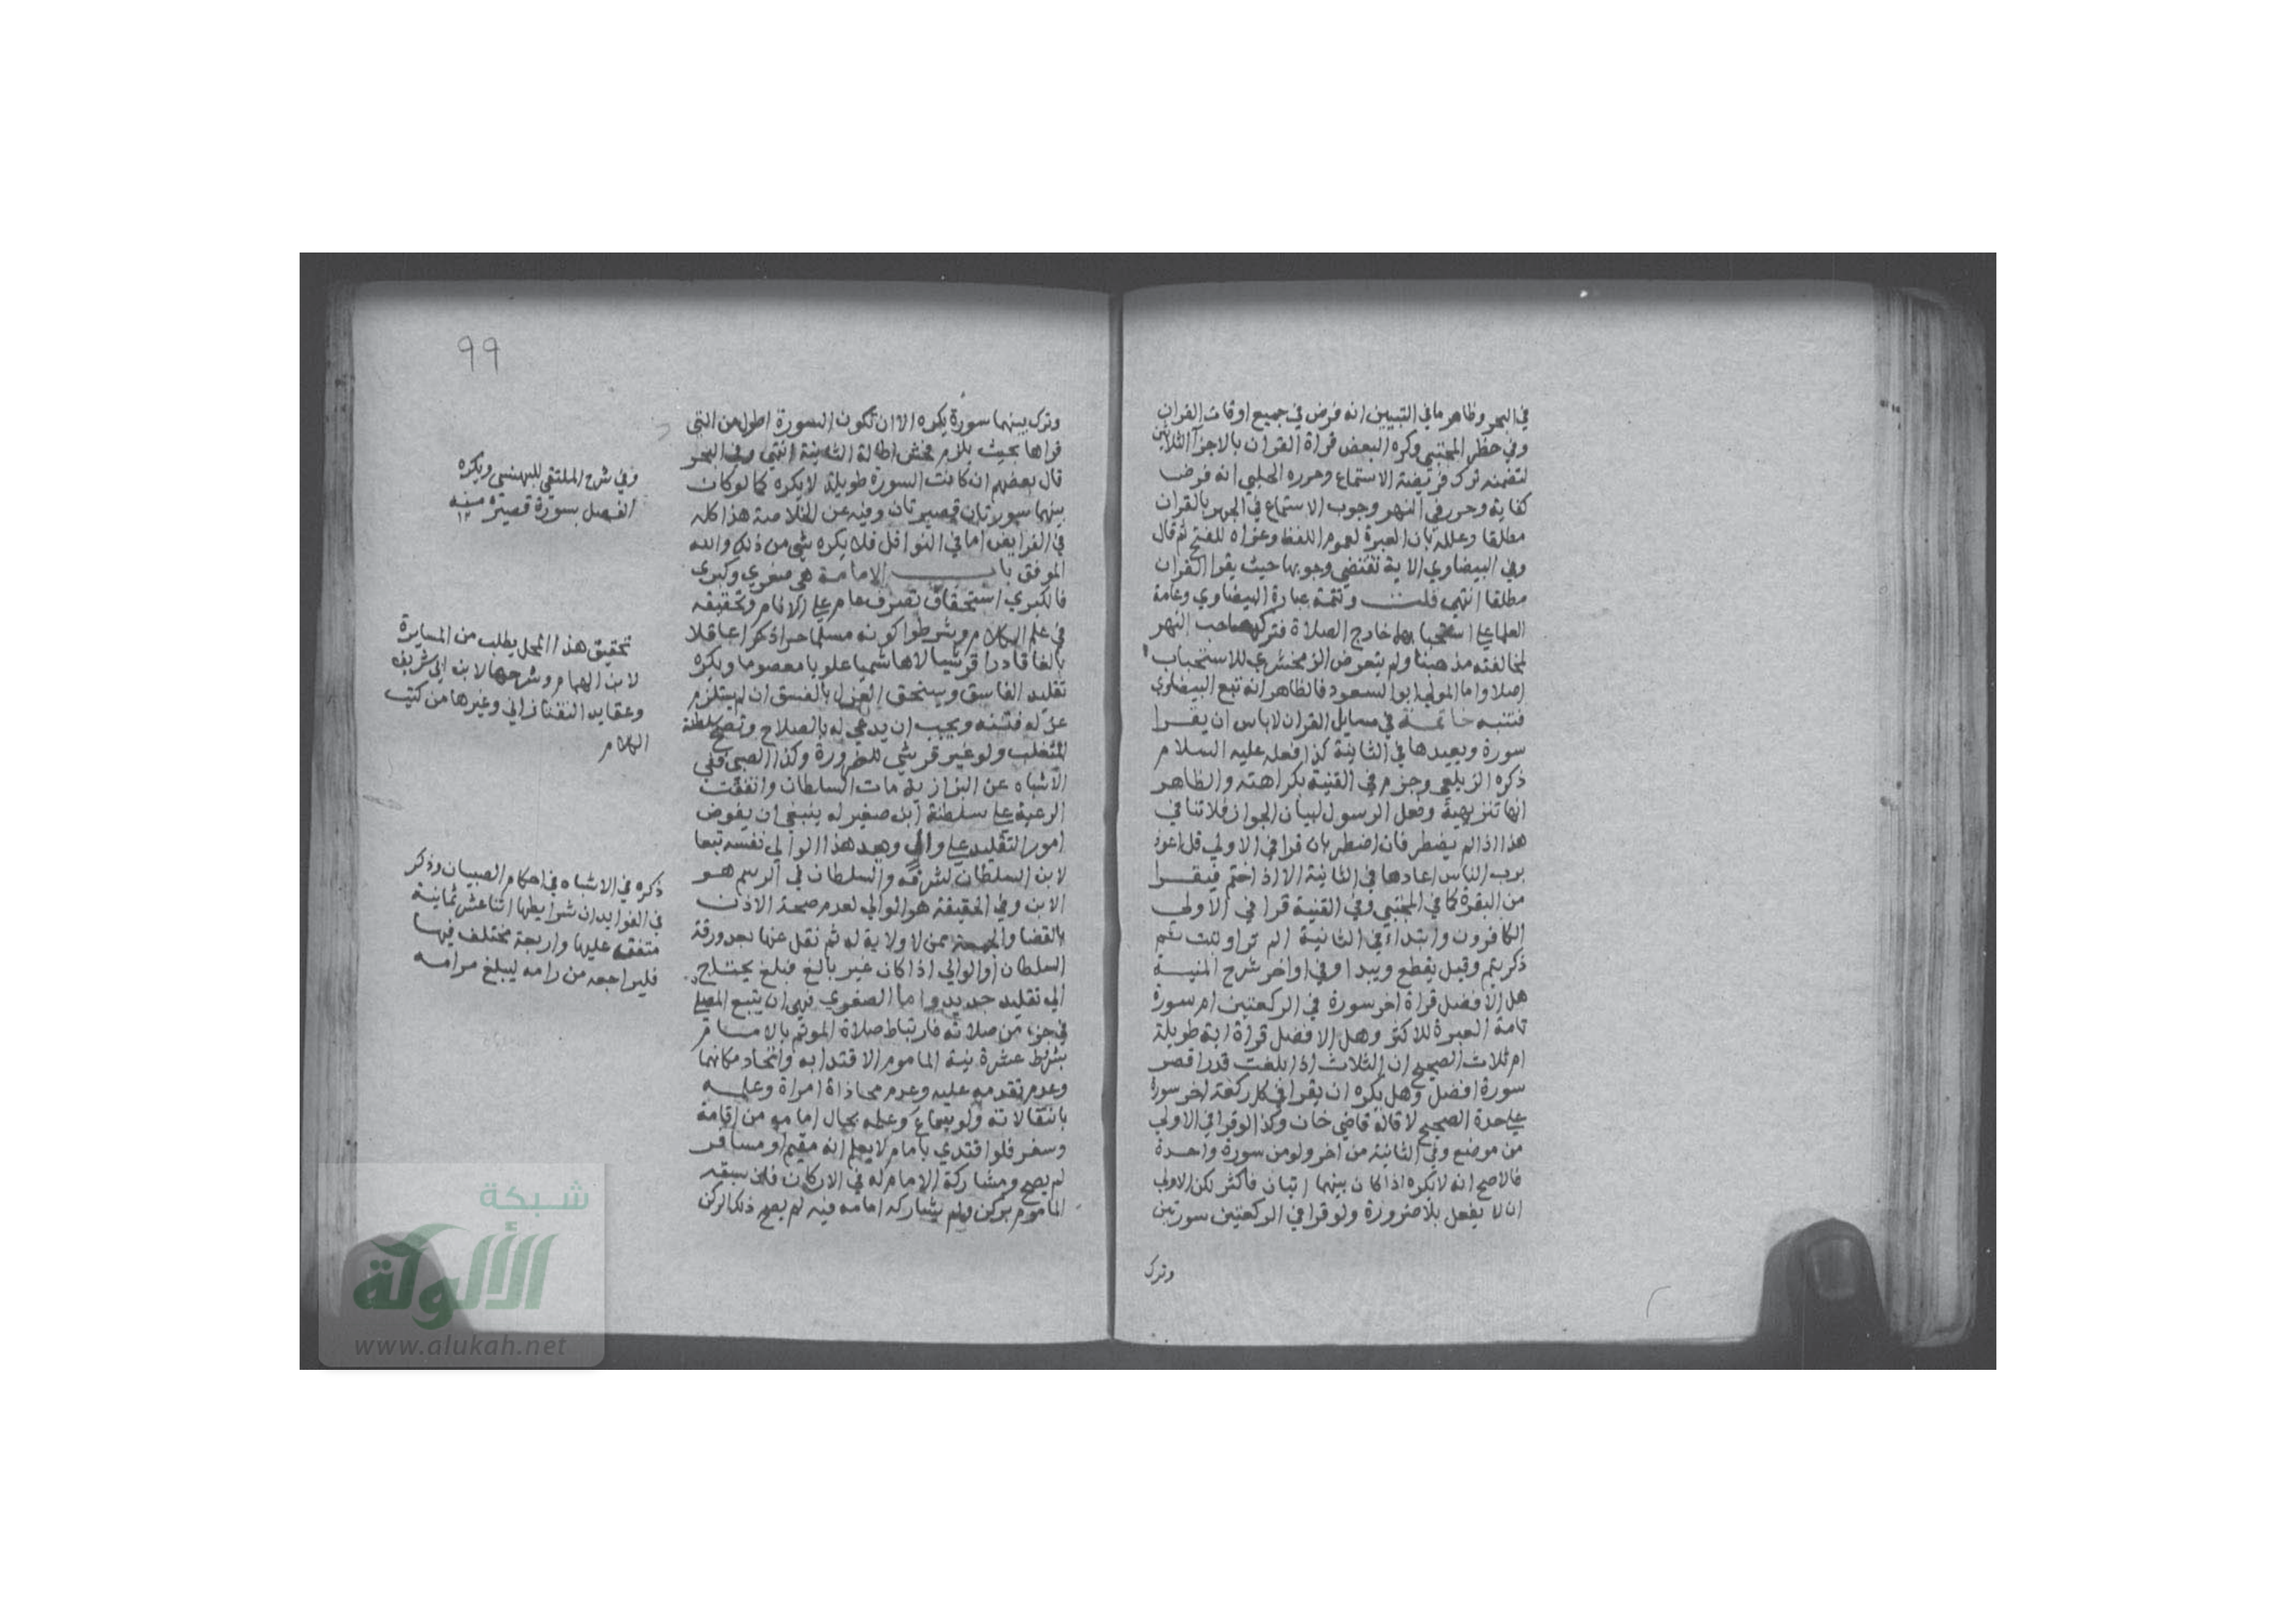 في البحر وظاهر ما في التبيين انه فرض في جميع اوقات القران
وفي حظر المجتبي وكره البعض قراة القران بالاجزآ الثلاثين
لتضمنه ترك فريضة الاستماع وحرره الحلبي انه فرض
كفاية وحرر في النهر وجوب الاستماع في الجهر بالقران
مطلقا وعلله بان العبرة لعموم اللفظ وعزاه للفتح ثم قال
وفي البيضاوي الاية تقتضي وجوبها حيث يقرا القران
مطلقا انتهي قلت وتتمة عبارة البيضاوي وعامة
العلما علي استحبابها خارج الصلاة فتركها صاحب النهر
لمخالفته مذهبنا ولم يتعرض الزمخشري للاستحباب
اصلا واما المولي ابو السعود فالظاهر انه تبع البيضاوي
فتنبه خاتمة في مسايل القران لاباس ان يقرا
سورة ويعيدها في الثانية كذا فعله عليه السلام
ذكره الزيلعي وجزم في القنية بكراهته والظاهر
انها تنزيهية وفعل الرسول لبيان الجواز فلا تنافي
هذا اذا لم يضطر فان اضطر بان قرا في الاولي قل اعوذ
برب الناس اعادها في الثانية الا اذا ختم فيقرا
من البقرة كما في المجتبي وفي القنية قرا في الاولي
الكافرون وابتدا في الثانية الم تر او تبت ثم
ذكر يتم وقيل يقطع ويبدا وفي اواخر شرح المنية
هل الافضل قراة اخر سورة في الركعتين ام سورة
تامة العبرة للاكثر وهل الافضل قراة اية طويلة
ام ثلاث الصحيح ان الثلاث اذا بلغت قدر اقصر
سورة افضل وهل يكره ان يقرا في كل ركعة اخر سورة
علي حدة الصحيح لا قاله قاضي خان وكذا لو قرا في الاولي
من موضع وفي الثانية من اخر ولو من سورة واحدة
فالاصح انه لا يكره اذا كان بينهما ايتان فاكثر لكن الاولي
ان لا يفعل بلا ضرورة ولو قرا في الركعتين سورتين
وترك
99
وترك بينهما سورة يكره الا ان تكون السورة اطول من التي
قراها بحيث يلزم منه اطالة الثانية انتهي وفي البحر
قال بعضهم ان كانت السورة طويلة لا يكره كما لو كان
بينهما سورتان قصيرتان وفيه عن الخلاصة هذا كله
في الفرايض اما في النوافل فلا يكره شي من ذلك والله
الموفق باب الامامة هي صغري وكبري
فالكبري استحقاق تصرف عام علي الانام وتحقيقه
في علم الكلام وشرطوا كونه مسلما حرا ذكرا عاقلا
بالغا قادرا قرشيا لا هاشميا علويا معصوما ويكره
تقليد الفاسق ويستحق العزل بالفسق ان لم يستلزم
عزله فتنه ويجب ان يدعي له بالصلاح وتصح سلطنة
المتغلب ولو غير قرشي للضرورة وكذا الصبي ففي
الاشباه عن البزازية مات السلطان واتفقت
الرعية علي سلطنة ابن صغير له ينبغي ان يفوض
امور التقليد علي والي ويعد هذا الوالي نفسه تبعا
لابن السلطان لشرفه والسلطان في الرسم هو
الابن وفي الحقيقة هو الوالي لعدم صحة الاذن
بالقضا والجمعة ممن لا ولاية له ثم نقل عنها بعد ورقة
السلطان او الوالي اذا كان غير بالغ فبلغ يحتاج
الي تقليد جديد واما الصغري فهي ان يتبع المصلي
في جزء من صلاته فارتباط صلاة الموتم بالامام
بشرط عشرة نية الماموم الاقتدا به واتحاد مكانهما
وعدم تقدمه عليه وعدم محاذاة امراة وعلمه
بانتقالاته ولو بسماع وعلمه بحال امامه من اقامة
وسفر فلو اقتدي بامام لا يعلم انه مقيم او مسافر
لم يصح ومشاركة الامام له في الاركان فلو سبقه
الماموم بركن ولم يشاركه امامه فيه لم يصح ذلك الركن
وفي شرح الملتقي للبهنسي ويكره
الفصل بسورة قصيرة منه
١٢
تحقيق هذا المحل يطلب من المسايرة
لابن الهمام وشرحها لابن ابي شريف
وعقايد التفتازاني وغيرها من كتب
الكلام
ذكره في الاشباه في احكام الصبيان وذكر
في الفوايد ان شرايطها اثنا عشر ثمانية
متفقه عليها واربعة مختلف فيها
فليراجعه من رامه ليبلغ مرامه
شبكة
الألوكة
www.alukah.net